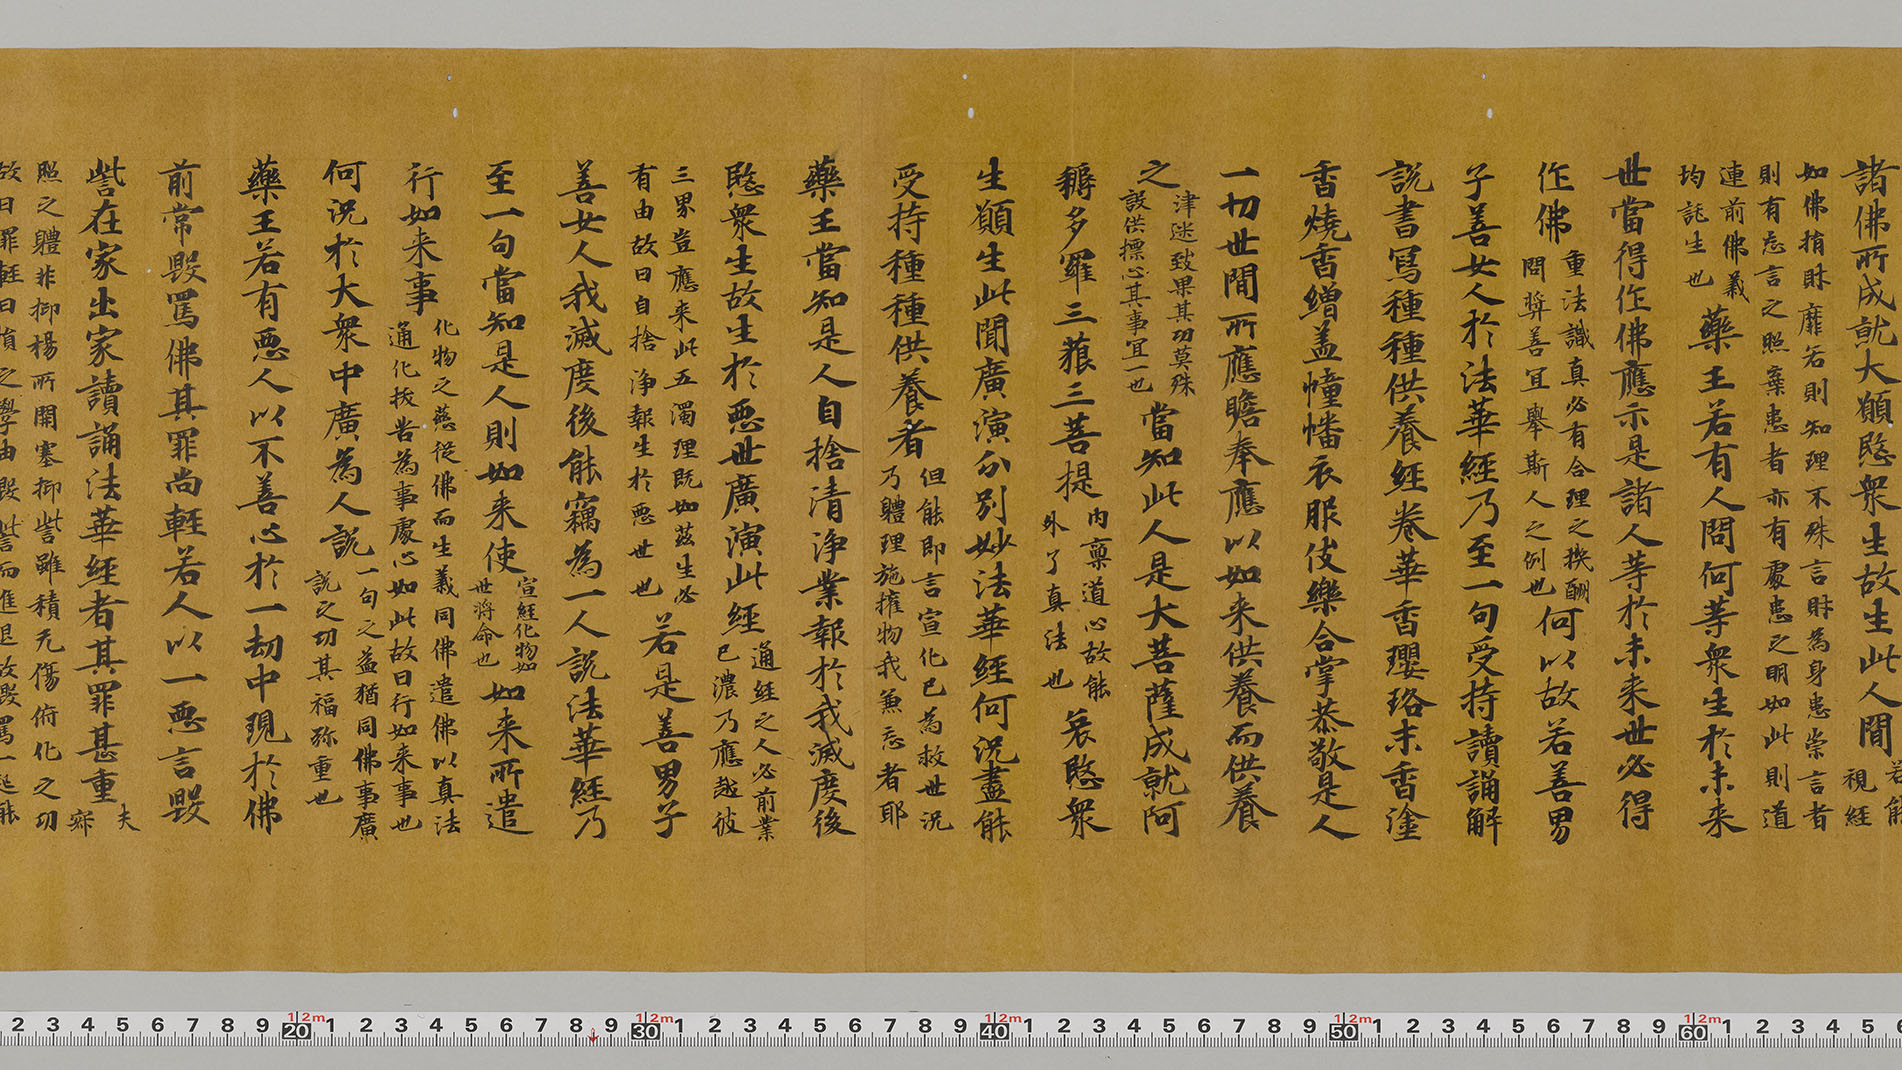 諸佛所成就大願愍衆生故生此人間若能視經
如佛捐財靡吝則知理不殊言財為身患崇言者
則有忘言之照棄患者亦有處患之明如此則道
連前佛義均託生也藥王若有人問何等衆生於未来
世當得作佛應示是諸人等於未来世必得
作佛重法識真必有合理之𢪛酬問獎善冝舉斯人之例也何以故若善男
子善女人於法華經乃至一句受持讀誦解
說書寫種種供養經卷華香瓔珞末香塗
香燒香繒盖幢幡衣服伎樂合掌恭敬是人
一切世間所應瞻奉應以如来供養而供養
之津迷致果其功莫殊設供標心其事冝一也當知此人是大菩薩成就阿
耨多羅三藐三菩提内稟道心故能外了真法也哀愍衆
生願生此間廣演分別妙法華經何況盡能
受持種種供養者但能即言宣化已為救世況乃體理施擁物我兼忘者耶
藥王當知是人自捨清浄業報於我滅度後
愍衆生故生於惡世廣演此經通經之人必前業已濃乃應越彼
三界豈應来此五濁理既如茲生必有由故曰自捨浄報生於惡世也若是善男子
善女人我滅度後能竊為一人說法華經乃
至一句當知是人則如来使宣經化物如世将命也如来所遣
行如来事化物之慈從佛而生義同佛遣佛以真法通化拔苦為事處心如此故曰行如来事也
何況於大衆中廣為人說一句之益猶同佛事廣說之功其福弥重也
藥王若有惡人以不善心於一劫中現於佛
前常毀罵佛其罪尚輕若人以一惡言毀
訾在家出家讀誦法華經者其罪甚重夫
照之體非抑楊所開塞抑訾雖積无傷俯化之功
故曰罪輕曰損之學由毀訾而進退故毀罵一